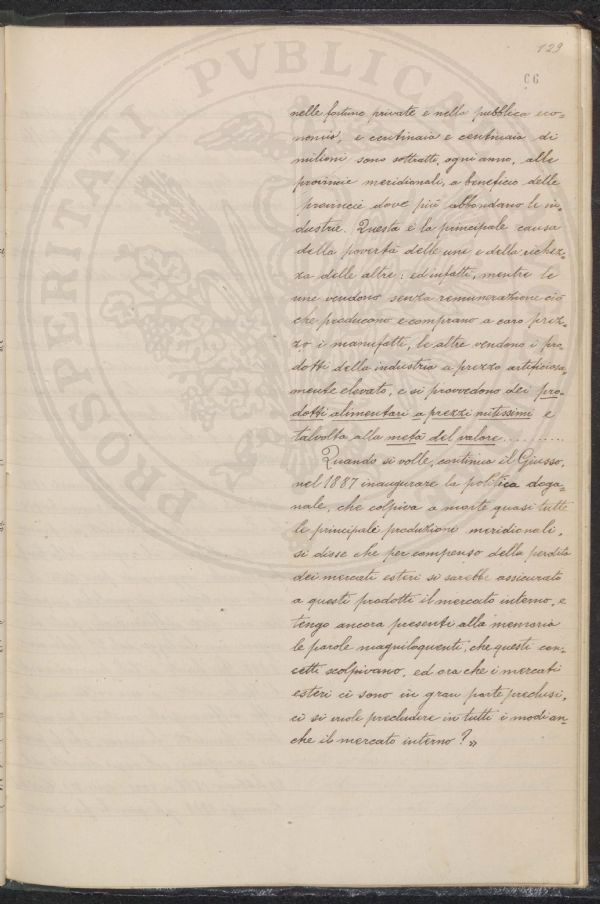 129
66
PROSPERITATI PVBLICAE
nelle fortune private e nella pubblica eco=
nomia, e centinaia e centinaia di
milioni sono sottratti, ogni anno, alle
provincie meridionali, a beneficio delle
provincie dove più abbondano le in=
dustrie. Questa è la principale causa
della povertà delle une e della ricchez=
za delle altre: ed infatti, mentre le
une vendono senza remunerazione ciò
che producono e comprano a caro prez=
zo i manufatti, le altre vendono i pro=
dotti della industria a prezzo artificiosa=
mente elevato, e si provvedono dei pro=
dotti alimentari a prezzi mitissimi e
talvolta alla metà del valore..........
Quando si volle, continua il Giusso,
nel 1887 inaugurare la politica doga=
nale, che colpiva a morte quasi tutte
le principale produzioni meridionali,
si disse che per compenso della perdita
dei mercati esteri si sarebbe assicurato
a questi prodotti il mercato interno, e
tengo ancora presenti alla memoria
le parole magniloquenti, che questi con=
cetti scolpivano, ed ora che i mercati
esteri ci sono in gran parte preclusi,
ci si vuole precludere in tutti i modi an=
che il mercato interno?»